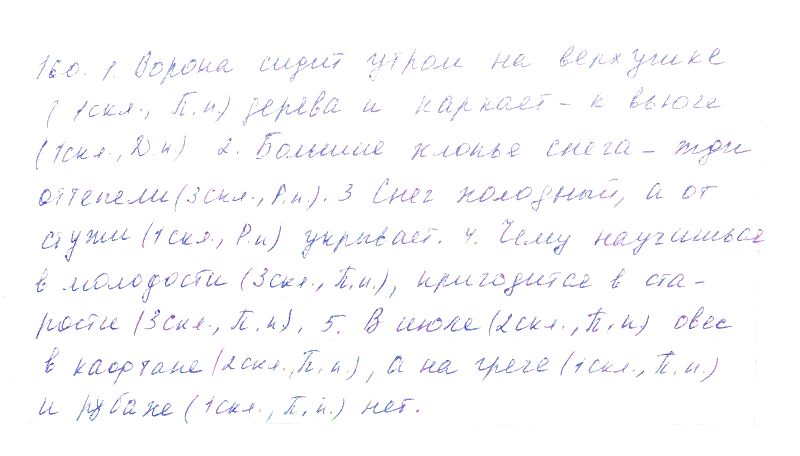 160. 1. Ворона сидит утром на верхушке
(1скл., П.п) дерева и каркает – к вьюге
(1скл., Д.п) 2. Большие хлопье снега – жди
оттепели (3скл., Р.п). 3 Снег холодный, а от
стужи (1скл., Р.п) укрывает. 4. Чему научишься
в молодости (3скл., П.п.), пригодится в ста-
рости (3скл., П.п). 5. В июле (2скл., П.п) овес
в кафтане (2скл., П.п), а на грече (1скл., П.п.)
и рубахе (1скл., П.п.) нет.